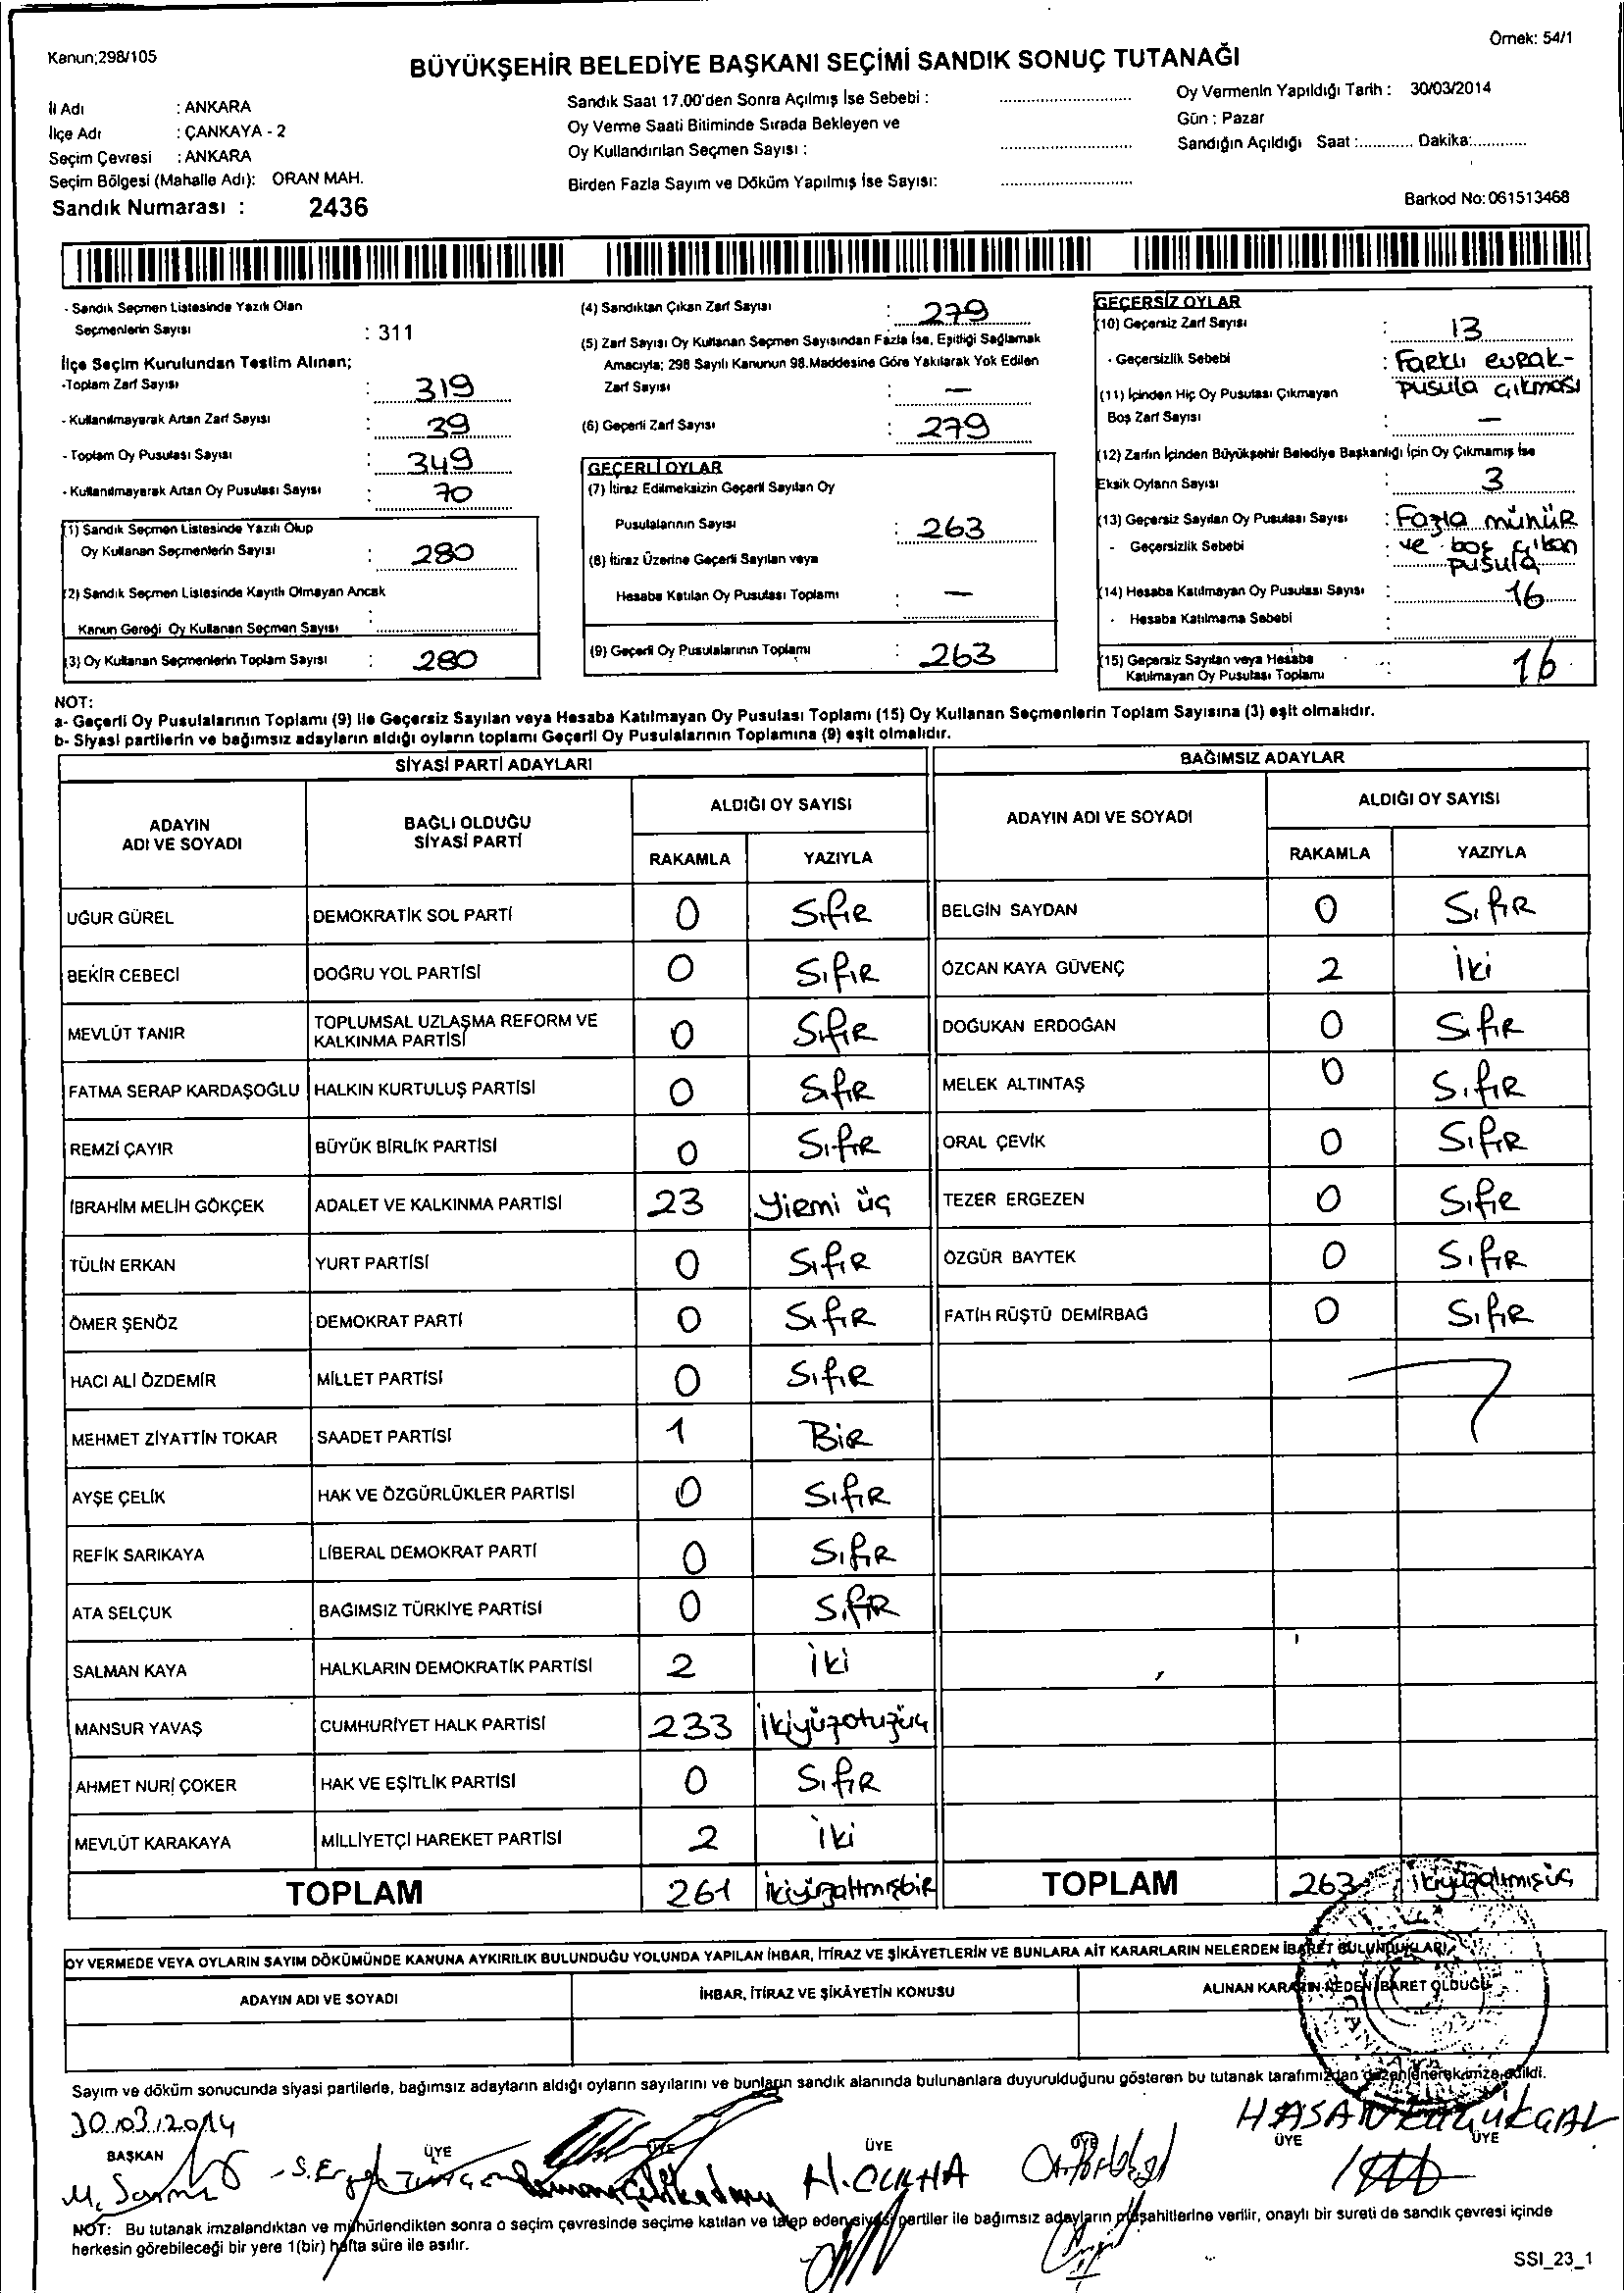 Kanun;298/105
Örnek: 54/1
BÜYÜKŞEHİR BELEDİYE BAŞKANI SEÇİMİ SANDIK SONUÇ TUTANAĞI
İl Adı : ANKARA
İlçe Adı : ÇANKAYA - 2
Seçim Çevresi : ANKARA
Seçim Bölgesi (Mahalle Adı): ORAN MAH.
Sandık Numarası : 2436
Sandık Saat 17.00'den Sonra Açılmış İse Sebebi :
Oy Verme Saati Bitiminde Sırada Bekleyen ve
Oy Kullandırılan Seçmen Sayısı :
Birden Fazla Sayım ve Döküm Yapılmış İse Sayısı:
Oy Vermenin Yapıldığı Tarih : 30/03/2014
Gün : Pazar
Sandığın Açıldığı Saat :............ Dakika:............
Barkod No:061513468
- Sandık Seçmen Listesinde Yazılı Olan
Seçmenlerin Sayısı : 311
İlçe Seçim Kurulundan Teslim Alınan;
-Toplam Zarf Sayısı : 319
- Kullanılmayarak Artan Zarf Sayısı : 39
- Toplam Oy Pusulası Sayısı : 349
- Kullanılmayarak Artan Oy Pusulası Sayısı : 70
(1) Sandık Seçmen Listesinde Yazılı Olup
Oy Kullanan Seçmenlerin Sayısı : 280
(2) Sandık Seçmen Listesinde Kayıtlı Olmayan Ancak
Kanun Gereği Oy Kullanan Seçmen Sayısı :
(3) Oy Kullanan Seçmenlerin Toplam Sayısı : 280
(4) Sandıktan Çıkan Zarf Sayısı : 279
(5) Zarf Sayısı Oy Kullanan Seçmen Sayısından Fazla İse, Eşitliği Sağlamak
Amacıyla; 298 Sayılı Kanunun 98.Maddesine Göre Yakılarak Yok Edilen
Zarf Sayısı : —
(6) Geçerli Zarf Sayısı : 279
GEÇERLİ OYLAR
(7) İtiraz Edilmeksizin Geçerli Sayılan Oy
Pusulalarının Sayısı : 263
(8) İtiraz Üzerine Geçerli Sayılan veya
Hesaba Katılan Oy Pusulası Toplamı : —
(9) Geçerli Oy Pusulalarının Toplamı : 263
GEÇERSİZ OYLAR
(10) Geçersiz Zarf Sayısı : 13
- Geçersizlik Sebebi : Farklı evrak-
pusula çıkması
(11) İçinden Hiç Oy Pusulası Çıkmayan
Boş Zarf Sayısı : —
(12) Zarfın İçinden Büyükşehir Belediye Başkanlığı İçin Oy Çıkmamış İse
Eksik Oyların Sayısı : 3
(13) Geçersiz Sayılan Oy Pusulası Sayısı : Fazla mühür
- Geçersizlik Sebebi : ve boş çıkan
pusula
(14) Hesaba Katılmayan Oy Pusulası Sayısı : 16
- Hesaba Katılmama Sebebi :
(15) Geçersiz Sayılan veya Hesaba
Katılmayan Oy Pusulası Toplamı : 16
NOT:
a- Geçerli Oy Pusulalarının Toplamı (9) ile Geçersiz Sayılan veya Hesaba Katılmayan Oy Pusulası Toplamı (15) Oy Kullanan Seçmenlerin Toplam Sayısına (3) eşit olmalıdır.
b- Siyasi partilerin ve bağımsız adayların aldığı oyların toplamı Geçerli Oy Pusulalarının Toplamına (9) eşit olmalıdır.
SİYASİ PARTİ ADAYLARI
BAĞIMSIZ ADAYLAR
ADAYIN
ADI VE SOYADI
BAĞLI OLDUĞU
SİYASİ PARTİ
ALDIĞI OY SAYISI
RAKAMLA YAZIYLA
ADAYIN ADI VE SOYADI
ALDIĞI OY SAYISI
RAKAMLA YAZIYLA
UĞUR GÜREL DEMOKRATİK SOL PARTİ 0 Sıfır BELGİN SAYDAN 0 Sıfır
BEKİR CEBECİ DOĞRU YOL PARTİSİ 0 Sıfır ÖZCAN KAYA GÜVENÇ 2 İki
MEVLÜT TANIR TOPLUMSAL UZLAŞMA REFORM VE
KALKINMA PARTİSİ 0 Sıfır DOĞUKAN ERDOĞAN 0 Sıfır
FATMA SERAP KARDAŞOĞLU HALKIN KURTULUŞ PARTİSİ 0 Sıfır MELEK ALTINTAŞ 0 Sıfır
REMZİ ÇAYIR BÜYÜK BİRLİK PARTİSİ 0 Sıfır ORAL ÇEVİK 0 Sıfır
İBRAHİM MELİH GÖKÇEK ADALET VE KALKINMA PARTİSİ 23 Yirmi üç TEZER ERGEZEN 0 Sıfır
TÜLİN ERKAN YURT PARTİSİ 0 Sıfır ÖZGÜR BAYTEK 0 Sıfır
ÖMER ŞENÖZ DEMOKRAT PARTİ 0 Sıfır FATİH RÜŞTÜ DEMİRBAĞ 0 Sıfır
HACI ALİ ÖZDEMİR MİLLET PARTİSİ 0 Sıfır
MEHMET ZİYATTİN TOKAR SAADET PARTİSİ 1 Bir
AYŞE ÇELİK HAK VE ÖZGÜRLÜKLER PARTİSİ 0 Sıfır
REFİK SARIKAYA LİBERAL DEMOKRAT PARTİ 0 Sıfır
ATA SELÇUK BAĞIMSIZ TÜRKİYE PARTİSİ 0 Sıfır
SALMAN KAYA HALKLARIN DEMOKRATİK PARTİSİ 2 İki
MANSUR YAVAŞ CUMHURİYET HALK PARTİSİ 233 İkiyüzotuzüç
AHMET NURİ ÇOKER HAK VE EŞİTLİK PARTİSİ 0 Sıfır
MEVLÜT KARAKAYA MİLLİYETÇİ HAREKET PARTİSİ 2 İki
TOPLAM 261 ikiyüzaltmışbir TOPLAM 263 ikiyüzaltmışüç
OY VERMEDE VEYA OYLARIN SAYIM DÖKÜMÜNDE KANUNA AYKIRILIK BULUNDUĞU YOLUNDA YAPILAN İHBAR, İTİRAZ VE ŞİKÂYETLERİN VE BUNLARA AİT KARARLARIN NELERDEN İBARET BULUNDUKLARI
ADAYIN ADI VE SOYADI İHBAR, İTİRAZ VE ŞİKÂYETİN KONUSU ALINAN KARARIN NEDEN İBARET OLDUĞU
Sayım ve döküm sonucunda siyasi partilerle, bağımsız adayların aldığı oyların sayılarını ve bunların sandık alanında bulunanlara duyurulduğunu gösteren bu tutanak tarafımızdan düzenlenerek imza edildi.
30.03.2014
BAŞKAN ÜYE ÜYE ÜYE ÜYE ÜYE ÜYE
NOT: Bu tutanak imzalandıktan ve mühürlendikten sonra o seçim çevresinde seçime katılan ve talep eden siyasi partiler ile bağımsız adayların müşahitlerine verilir, onaylı bir sureti de sandık çevresi içinde
herkesin görebileceği bir yere 1(bir) hafta süre ile asılır.
SSI_23_1